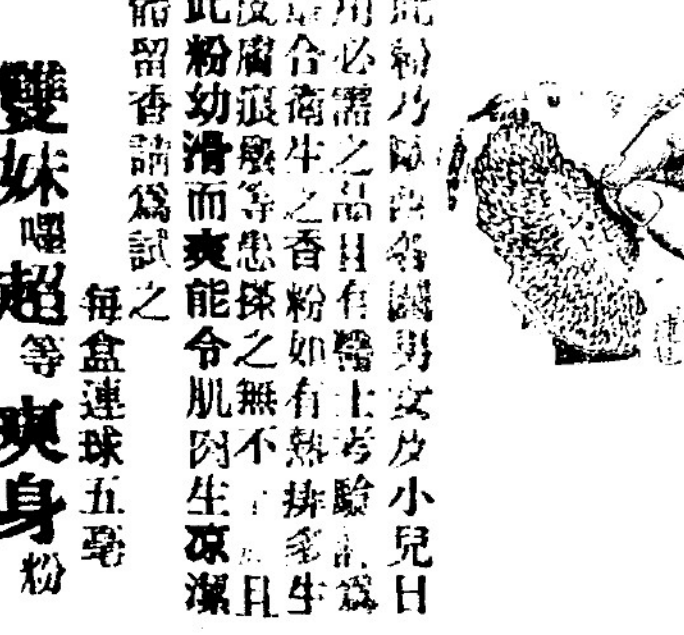 此粉乃歐西各國男女及小兒日
用必需之品且有醫士考驗為
合衛生之香粉如有熱痱生
皮膚痕癢等患搽之無不且
此粉幼滑而爽能令肌肉生凉潔
能留香請為試之
每盒連球五毫
雙妹嚜超等爽身粉